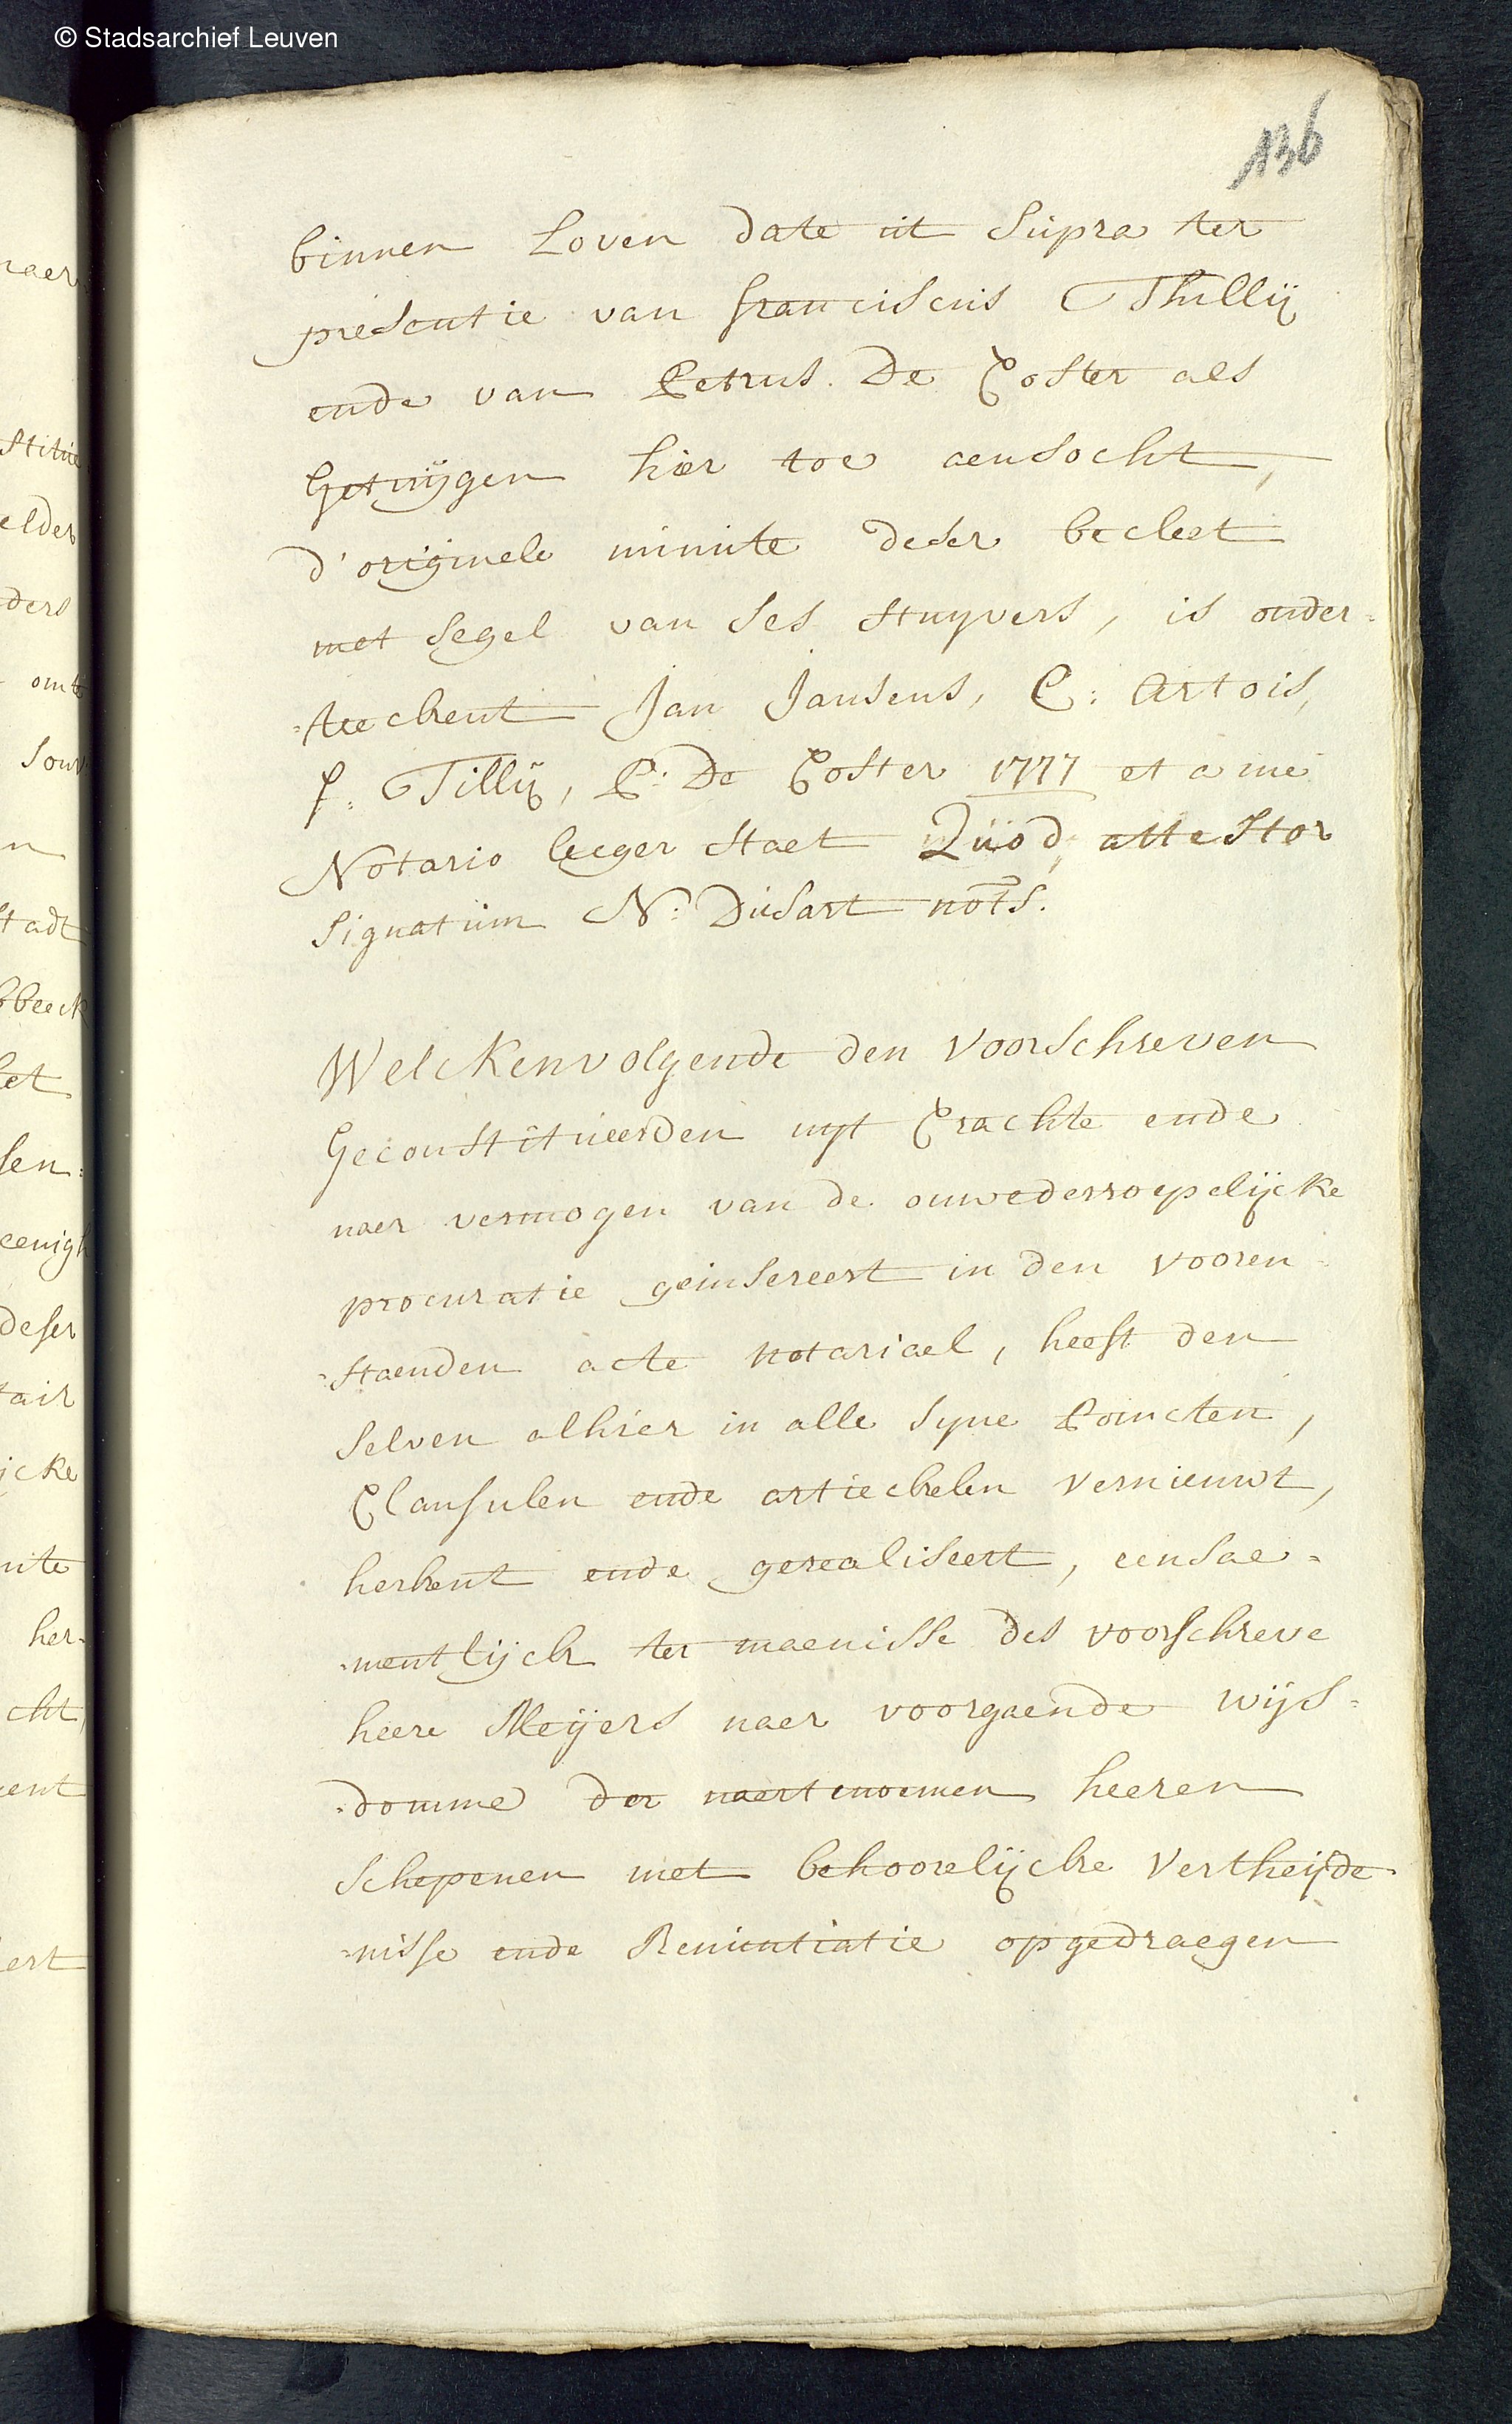 © Stadsarchief Leuven
136
binnen Loven date ut supra ter
presentie van franciscus Thillij
ende van Petrus De Coster als
Getuijgen hier toe aensocht,
d'originele minute deser becleet
met segel van ses stuyvers, is onder=
=teeckent Jan Jansens, C: Artois,
f: Tillij, P: De Coster 1777 et a me
Notario leeger staet Quod attestor
signatum N: Dusart nots.
Welckenvolgende den voorschreven
Geconstitueerden uyt Crachte ende
naer vermogen van de onwederroepelijcke
procuratie geinsereert in den vooren=
=staenden acte notariael, heeft den
selven alhier in alle syne Poincten,
Clausulen ende artieckelen vernieuwt,
herkent ende gerealiseert, eensae=
=mentlijck ter maenisse des voorschreve
heere Meijers naer voorgaende wijs=
=domme der naertenoemen heeren
schepenen met behoorelijcke Vertheijde=
=nisse ende Renuntiatie opgedraegen
naer
stitue
elder
ders
omt
souv
n
stadt
bbeeck
et
sen=
eenigh
deser
tair
icke
nite
her=
cht,
ent
ert